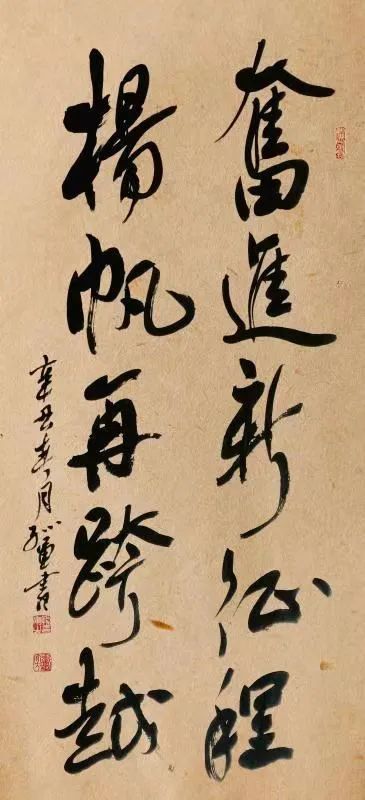 奮進新征程
楊帆再跨越
辛丑春月 書